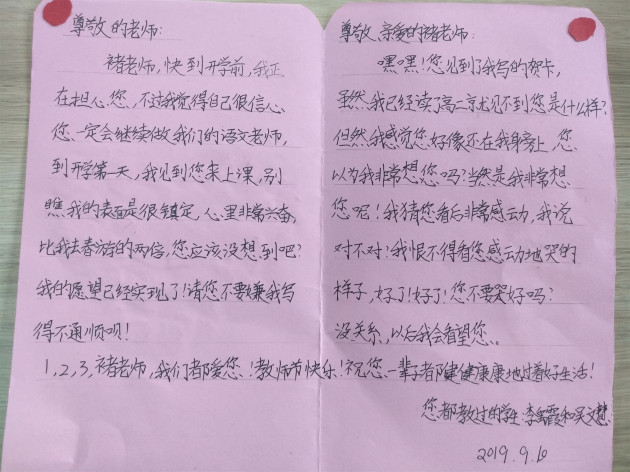 尊敬的老师：
褚老师，快到开学前，我正
在担人您，不过我觉得自己很信心
您一定会继续做我们的语文老师，
到开学第一天，我见到您来上课，别
瞧我的表面是很镇定，心里非常兴奋，
比我去春游的两倍，您应该没想到吧？
我的愿望已经实现了！请您不要嫌我写
得不通顺呗！
尊敬、亲爱的褚老师：
嘿嘿！您见到了我写的贺卡，
虽然我已经读了高二就见不到您是什么样？
但然我感觉您好像还在我身旁上，您
以为我非常想您吗？当然是我非常想
您呢！我猜您看后非常感动，我说
对不对！我恨不得看您感动地哭的
样子，好了！好了！您不要哭好吗？
没关系，以后我会看望您。
1，2，3，褚老师，我们都爱您！教师节快乐！祝您一辈子都健健康康地过着好生活！
您都教过的学生：李霞和吴文慧
2019.9.10